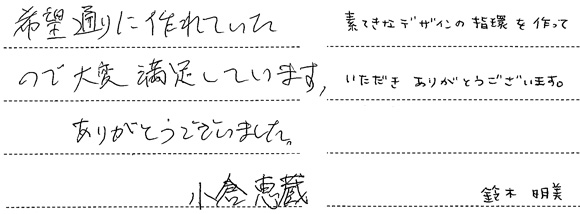 希望通りに作れていた
ので大変満足しています,
ありがとうございました。
小倉恵蔵
素てきなデザインの指環を作って
いただき ありがとうございます。
鈴木 明美